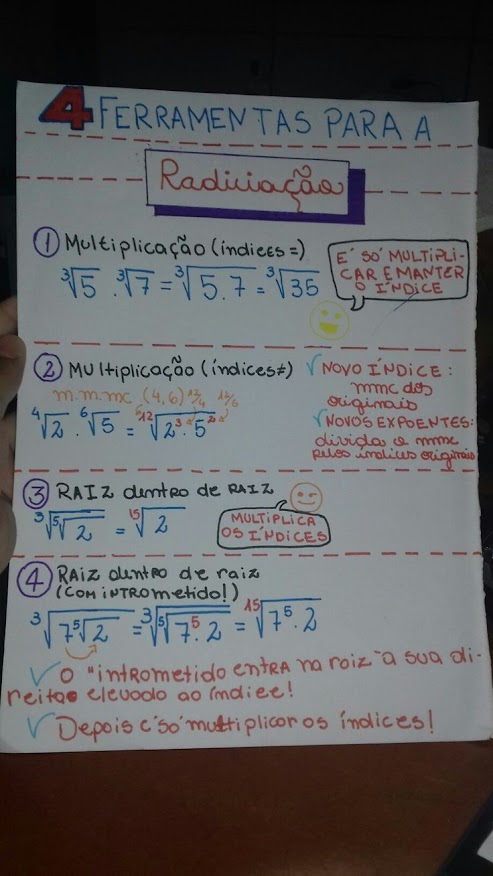 4 FERRAMENTAS PARA A
Radiciação
1 Multiplicação (índices =)
³√5 . ³√7 = ³√5.7 = ³√35
É SÓ MULTIPLI-
CAR E MANTER
O ÍNDICE
2 Multiplicação (índices ≠)
m.m.mc (4,6) 12/4 12/6
⁴√2 . ⁶√5 = ¹²√2³.5²
√ NOVO ÍNDICE:
mmc dos
originais
√ NOVOS EXPOENTES:
divida o mmc
pelos índices originais
3 RAIZ dentro de RAIZ
³√⁵√2 = ¹⁵√2
MULTIPLICA
OS ÍNDICES
4 Raiz dentro de raiz
(COM INTROMETIDO!)
³√7⁵√2 = ³√⁵√7⁵.2 = ¹⁵√7⁵.2
√ O "intrometido ENTRA na raiz" a sua di-
reita e elevado ao índice!
√ Depois é só multiplicar os índices!